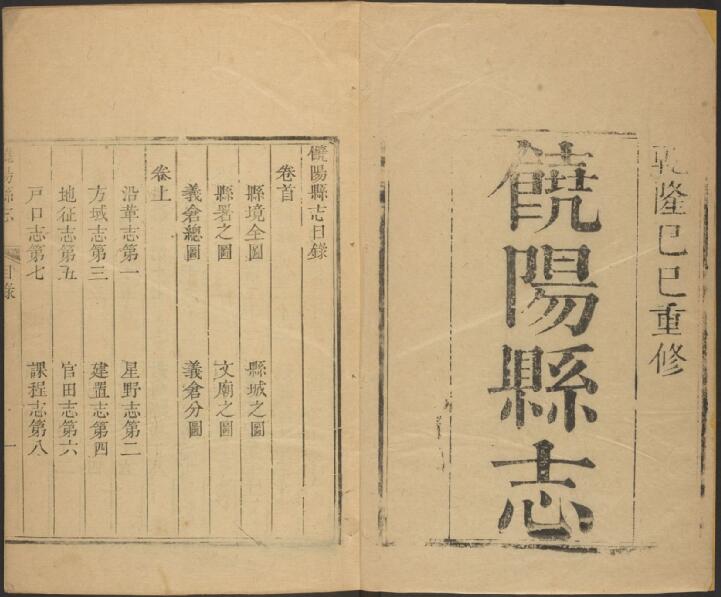 乾隆己巳重修
饒陽縣志
饒陽縣志目錄
卷首
縣境全圖 縣城之圖
縣署之圖 文廟之圖
義倉總圖 義倉分圖
卷上
沿革志第一 星野志第二
方域志第三 建置志第四
地征志第五 官田志第六
戶口志第七 課程志第八
饒陽縣志 目錄 一